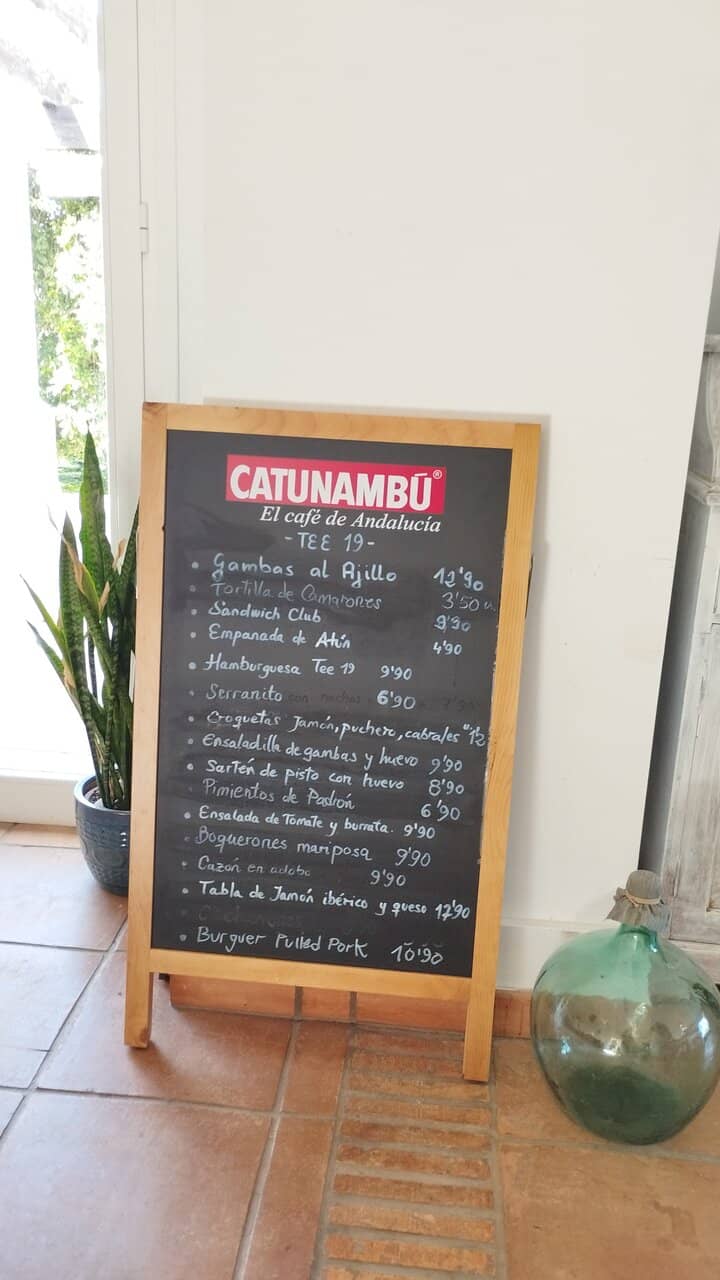 CATUNAMBÚ®
El café de Andalucía
- TEE 19 -
• Gambas al Ajillo 12'90
• Tortilla de Camarones 3'50
• Sandwich Club 9'90
• Empanada de Atún 4'90
• Hamburguesa Tee 19 9'90
• Serranito 6'90
• Croquetas Jamón, puchero, cabrales
• Ensaladilla de gambas y huevo 9'90
• Sartén de pisto con huevo 8'90
• Pimientos de Padrón 6'90
• Ensalada de Tomate y burrata. 9'90
• Boquerones mariposa 9'90
• Cazón en adobo 9'90
• Tabla de Jamón ibérico y queso 17'90
• Burguer Pulled Pork 10'90